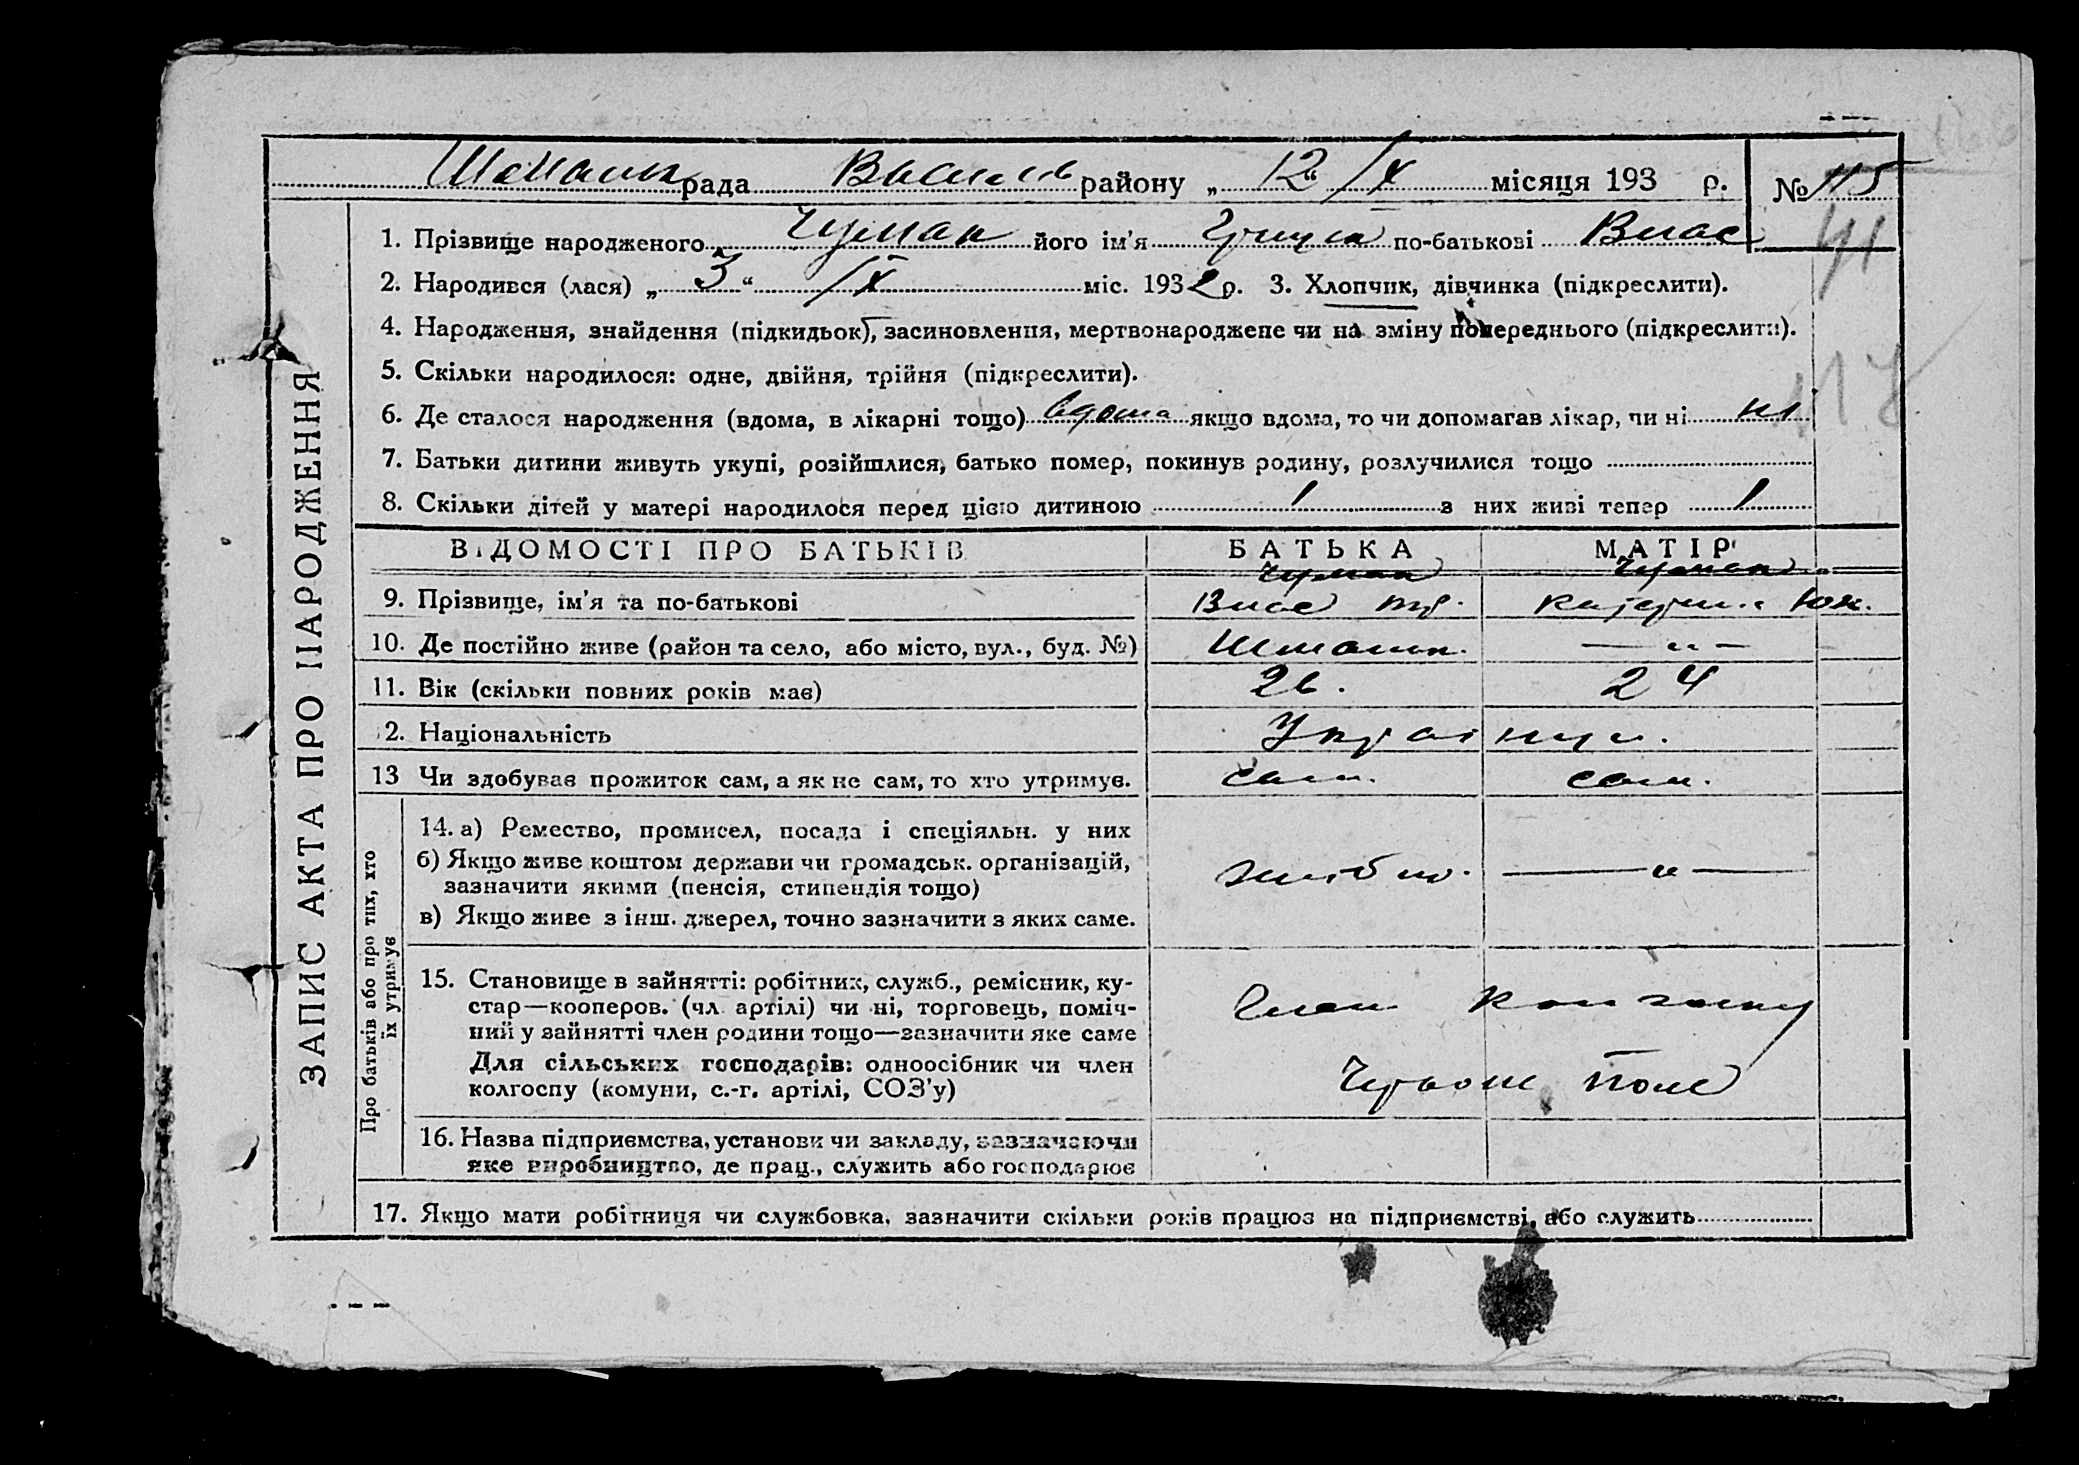 рада району „ 12 “ IX місяця 193 р. № 115
41
1. Прізвище народженого Чумак його ім'я Гриць по-батькові Влас
2. Народився (лася) „ 3 “ IX міс. 1932 р. 3. Хлопчик, дівчинка (підкреслити).
4. Народження, знайдення (підкидьок), засиновлення, мертвонароджене чи на зміну попереднього (підкреслити).
5. Скільки народилося: одне, двійня, трійня (підкреслити).
6. Де сталося народження (вдома, в лікарні тощо) вдома якщо вдома, то чи допомагав лікар, чи ні ні
7. Батьки дитини живуть укупі, розійшлися, батько помер, покинув родину, розлучилися тощо
8. Скільки дітей у матері народилося перед цією дитиною 1 з них живі тепер 1
ВІДОМОСТІ ПРО БАТЬКІВ БАТЬКА МАТІР
Чумак Чумак
9. Прізвище, ім'я та по-батькові Влас Катерина
10. Де постійно живе (район та село, або місто, вул., буд. №) — „ —
11. Вік (скільки повних років має) 26. 24
12. Національність Українці.
13 Чи здобував прожиток сам, а як не сам, то хто утримує. сам. сам.
14. а) Ремество, промисел, посада і спеціяльн. у них
б) Якщо живе коштом держави чи громадськ. організацій,
зазначити якими (пенсія, стипендія тощо) хлібор. — „ —
в) Якщо живе з інш. джерел, точно зазначити з яких саме.
15. Становище в зайнятті: робітник, служб., ремісник, ку-
стар—кооперов. (чл. артілі) чи ні, торговець, поміч-
ний у зайнятті член родини тощо—зазначити яке саме
Член колгоспу
Для сільських господарів: одноосібник чи член
колгоспу (комуни, с.-г. артілі, СОЗ'у)
Червоне Поле
16. Назва підприємства, установи чи закладу, зазначаючи
яке виробництво, де прац., служить або господарює
17. Якщо мати робітниця чи службовка, зазначити скільки років працює на підприємстві, або служить
ЗАПИС АКТА ПРО НАРОДЖЕННЯ
Про батьків або про тих, хто
їх утримує